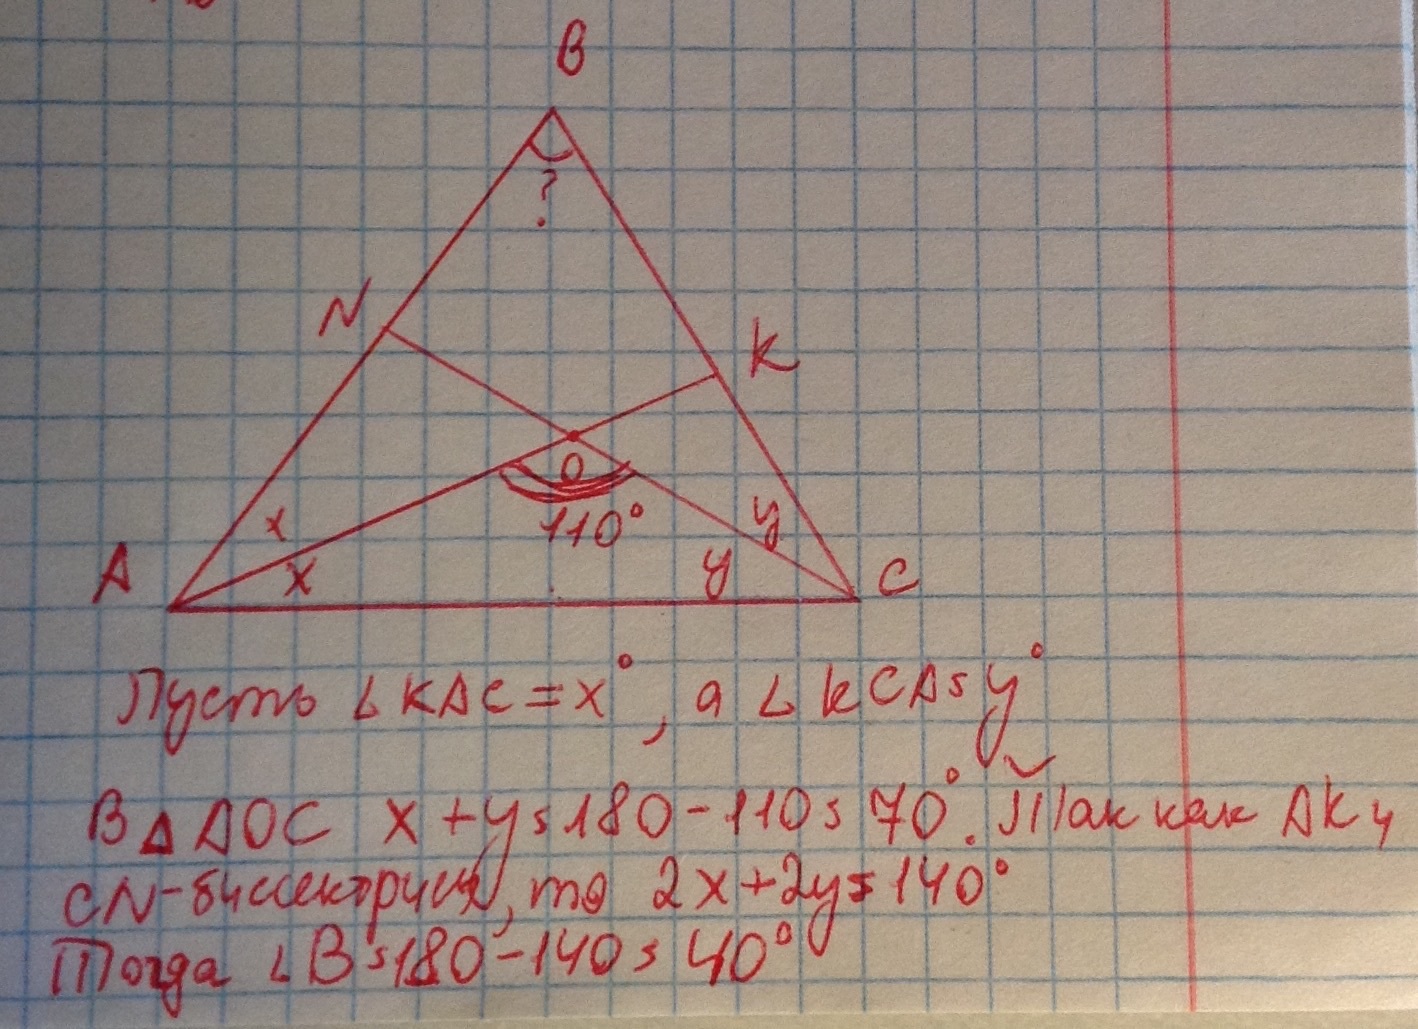 B
?
N
K
O
110°
x
y
x
y
A
C
Пусть ∠KAC=x°, а ∠KCA=y°
В △AOC x+y=180-110=70°. Так как AK и
CN-биссектрисы, то 2x+2y=140°
Тогда ∠B=180-140=40°